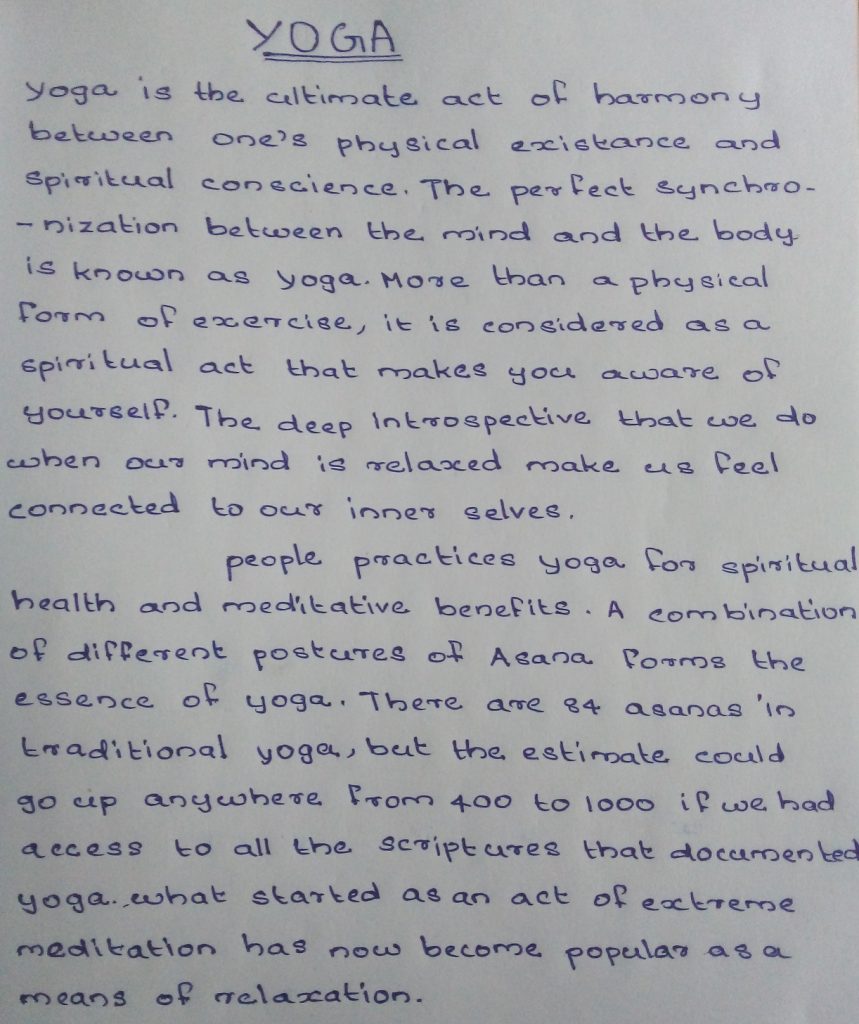 YOGA
Yoga is the ultimate act of harmony
between one's physical existance and
spiritual conscience. The perfect synchro-
-nization between the mind and the body
is known as yoga. More than a physical
form of exercise, it is considered as a
spiritual act that makes you aware of
yourself. The deep Introspective that we do
when our mind is relaxed make us feel
connected to our inner selves.
people practices yoga for spiritual
health and meditative benefits. A combination
of different postures of Asana forms the
essence of yoga. There are 84 asanas in
traditional yoga, but the estimate could
go up anywhere from 400 to 1000 if we had
access to all the scriptures that documented
yoga. what started as an act of extreme
meditation has now become popular as a
means of relaxation.